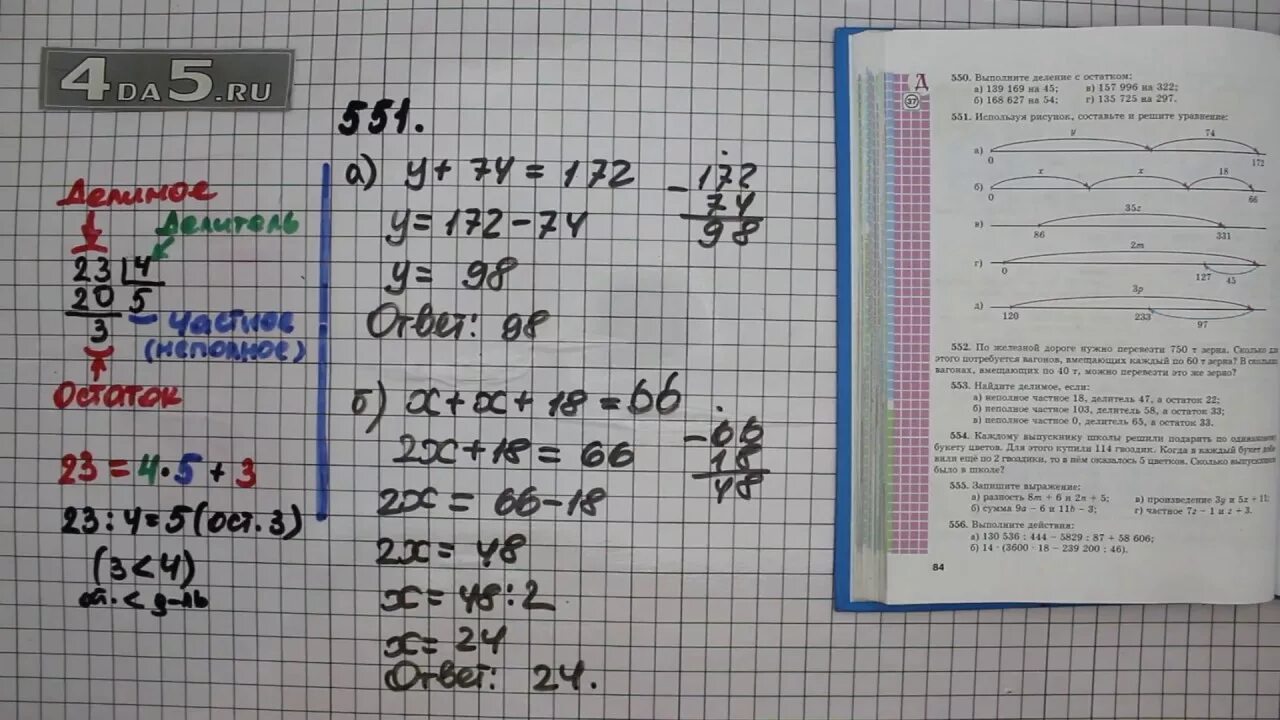 4DA5.RU
Делимое
Делитель
23 4
20 5
3
частное
(неполное)
Остаток
23 = 4 · 5 + 3
23 : 4 = 5 (ост. 3)
(3 < 4)
ост. < д-ль
551.
а) y + 74 = 172
y = 172 - 74
y = 98
Ответ: 98
- 172
74
98
б) x + x + 18 = 66
2x + 18 = 66
2x = 66 - 18
2x = 48
x = 48 : 2
x = 24
Ответ: 24.
- 66
18
48
Д
37
550. Выполните деление с остатком:
а) 139 169 на 45; в) 157 996 на 322;
б) 168 627 на 54; г) 135 725 на 297.
551. Используя рисунок, составьте и решите уравнение:
y 74
а) 0 172
x x 18
б) 0 66
35z
в) 86 331
2m
г) 0 127 45
3p
д) 120 233 97
552. По железной дороге нужно перевезти 750 т зерна. Сколько
этого потребуется вагонов, вмещающих каждый по 60 т зерна? В
вагонах, вмещающих по 40 т, можно перевезти это же зерно?
553. Найдите делимое, если:
а) неполное частное 18, делитель 47, а остаток 22;
б) неполное частное 103, делитель 58, а остаток 33;
в) неполное частное 0, делитель 65, а остаток 33.
554. Каждому выпускнику школы решили подарить по
букету цветов. Для этого купили 114 гвоздик. Когда в каждый букет
вили ещё по 2 гвоздики, то в нём оказалось 5 цветков. Сколько
было в школе?
555. Запишите выражение:
а) разность 8m + 6 и 2n + 5; в) произведение 3y и 5x + 11;
б) сумма 9a - 6 и 11b - 3; г) частное 7z - 1 и z + 3.
556. Выполните действия:
а) 130 536 : 444 - 5829 : 87 + 58 606;
б) 14 · (3600 · 18 - 239 200 : 46).
84